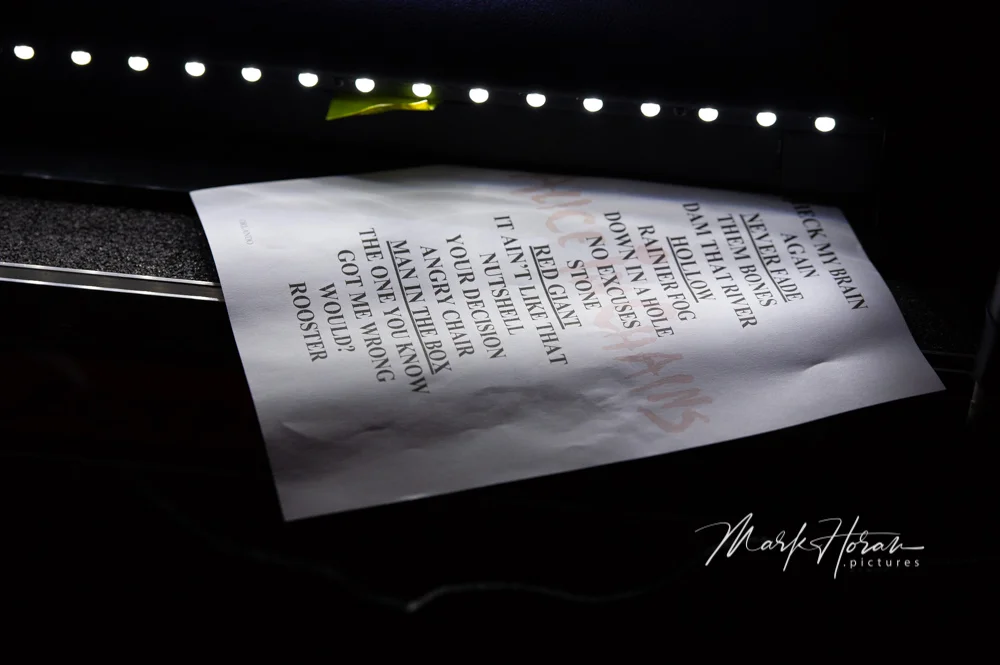 ECK MY BRAIN
AGAIN
NEVER FADE
THEM BONES
DAM THAT RIVER
HOLLOW
RAINIER FOG
DOWN IN A HOLE
NO EXCUSES
STONE
RED GIANT
IT AIN'T LIKE THAT
NUTSHELL
YOUR DECISION
ANGRY CHAIR
MAN IN THE BOX
THE ONE YOU KNOW
GOT ME WRONG
WOULD?
ROOSTER
ORLANDO
ALICE IN CHAINS
Mark Horan
.pictures